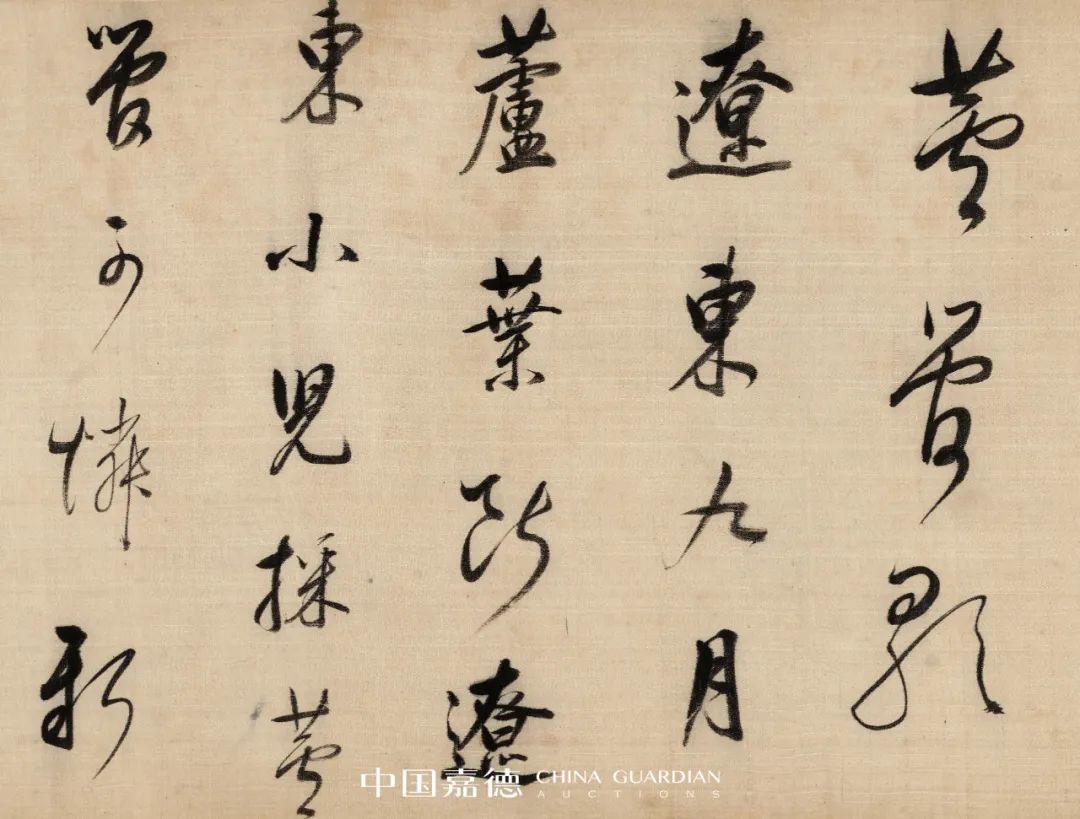 蘆管歌
遼東九月
蘆葉斷遼
東小兒採蘆
管可憐新
中国嘉德 CHINA GUARDIAN
AUCTIONS